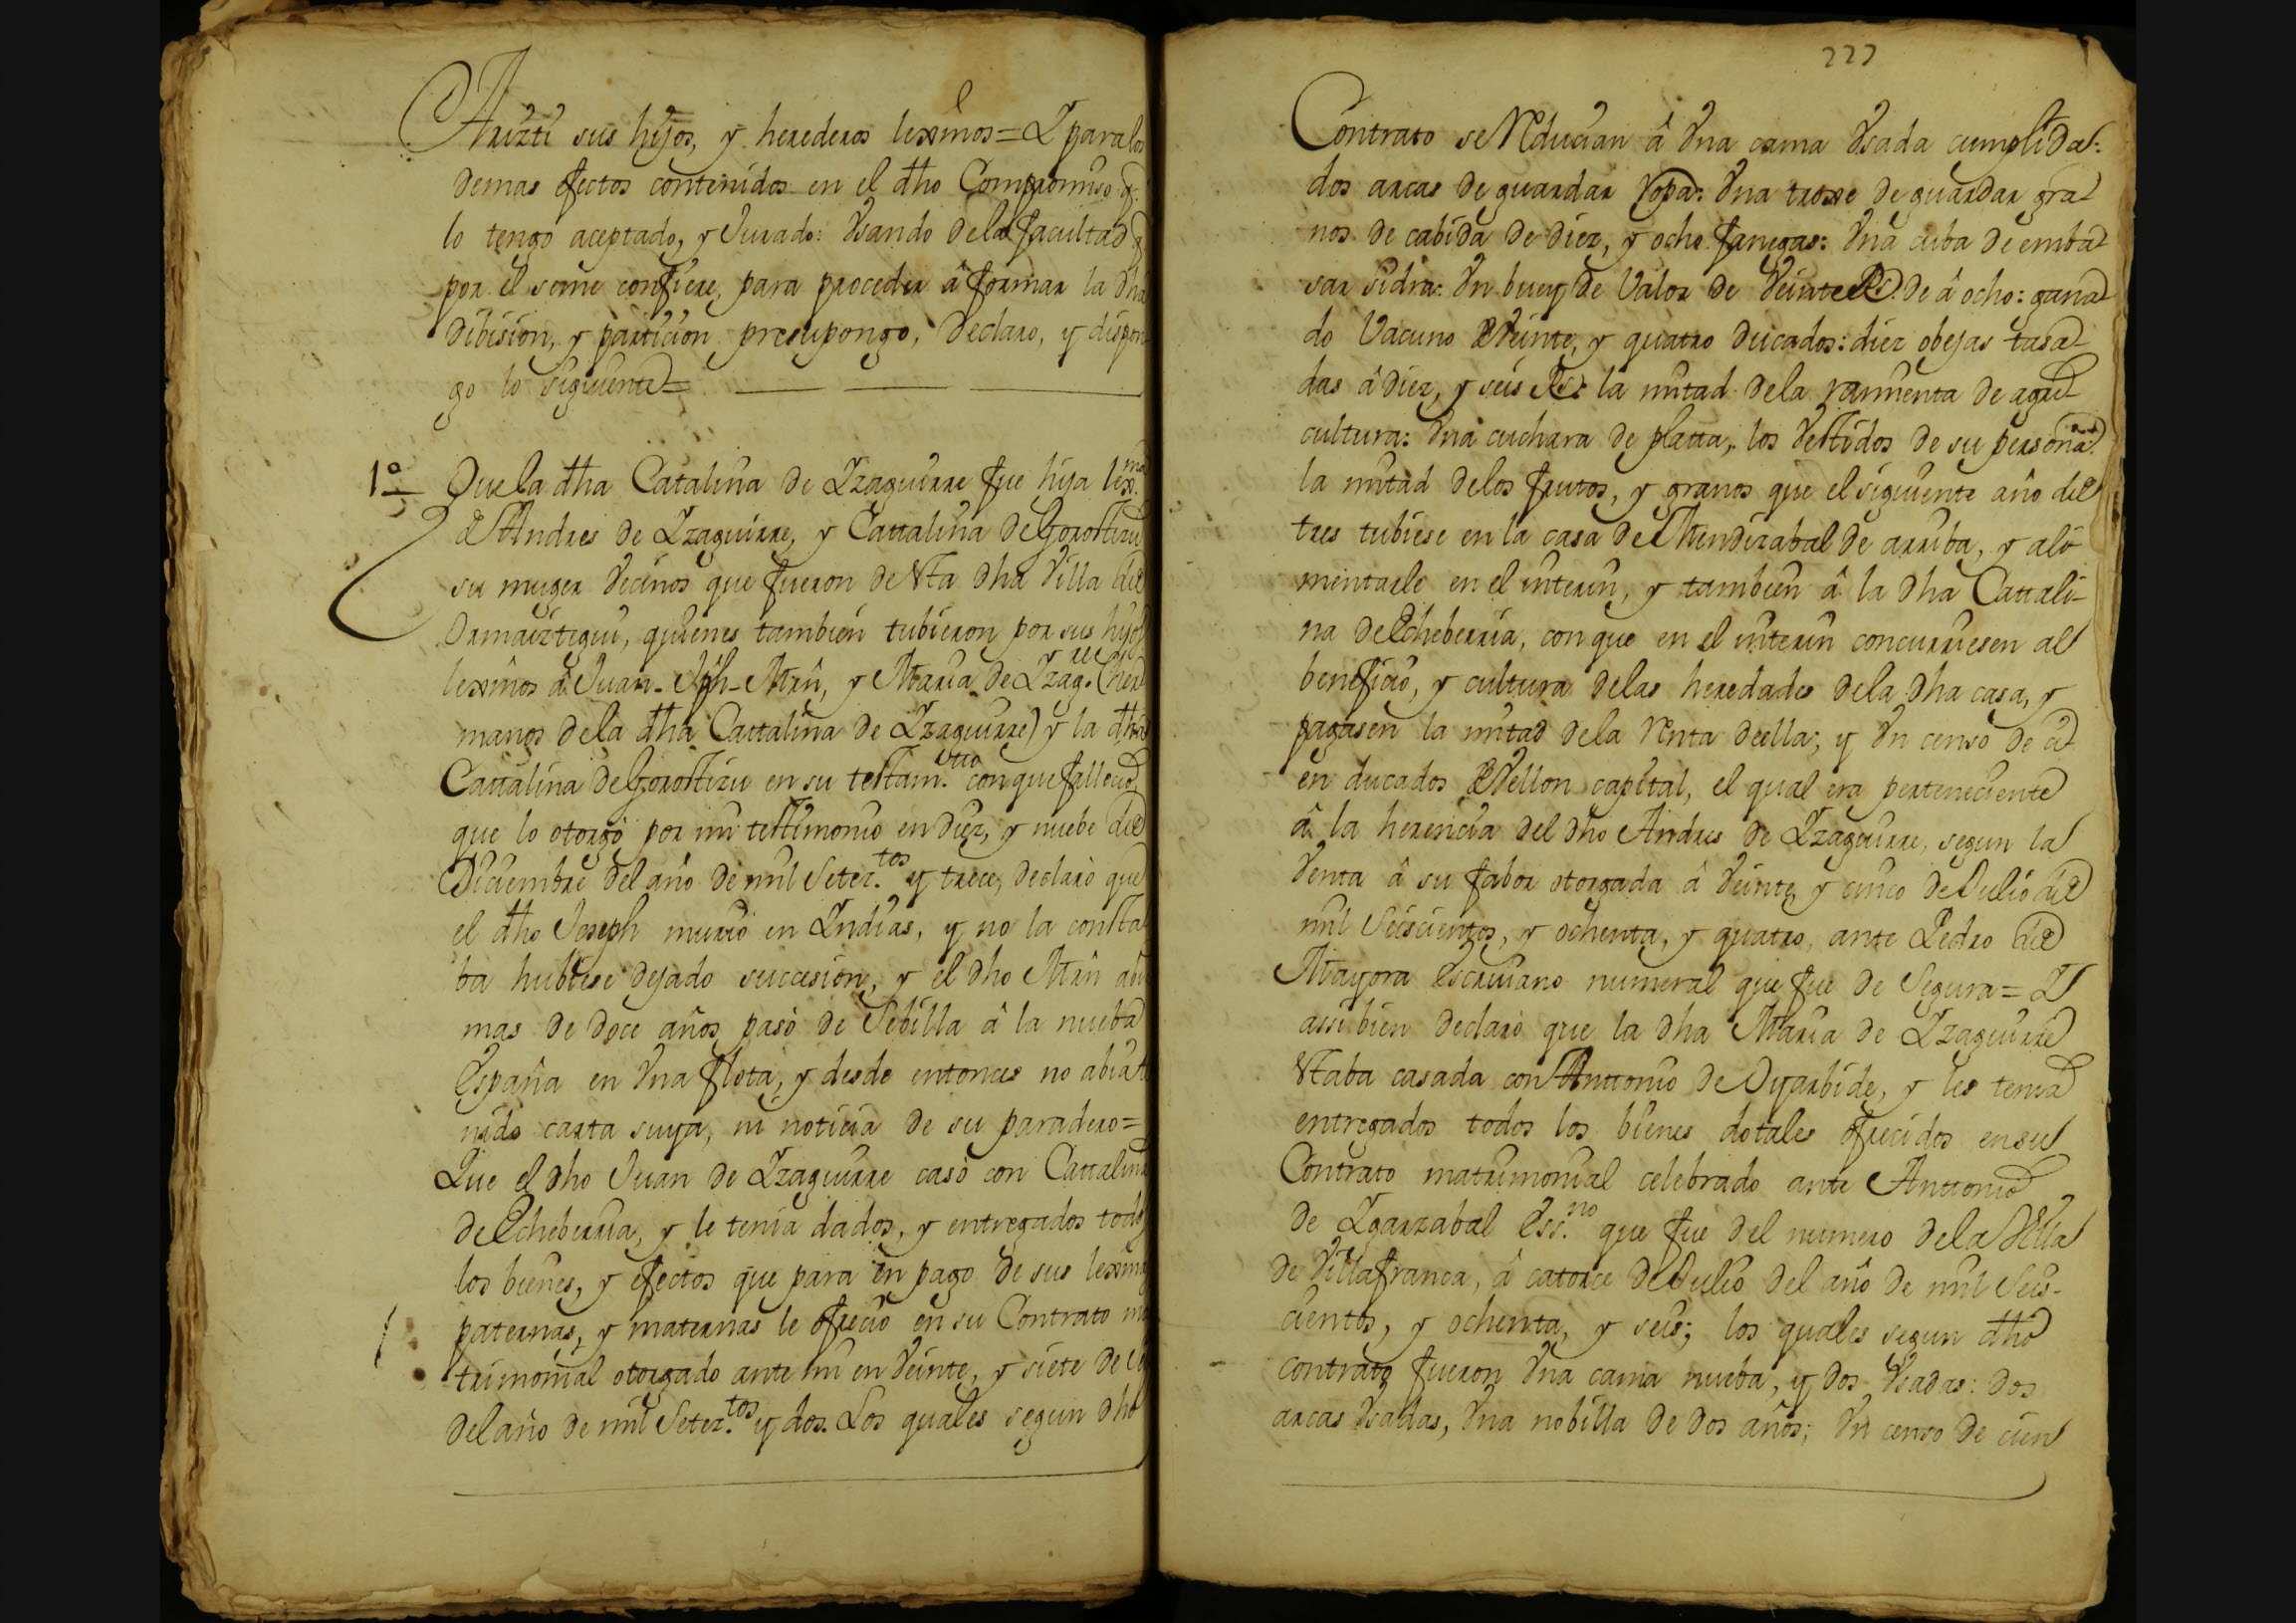 Arizti sus hijos, y herederos lexmos = Y para los
demas efectos contenidos en el dho Compromiso q.
lo tengo aceptado, y Jurado: Vsando dela facultad q
por el seme confiere, para proceder â formar la dha
dibision, y particion presupongo, declaro, y dispon
go lo siguiente =
1º Que la dha Catalina de Yzaguirre fue hija lex.ma
de Andres de Yzaguirre, y Cattalina de Gorostizu
su muger Vecinos que fueron de esta dha Villa de
Ormaiztegui, quienes tambien tubieron por sus hijos
lexmos â Juan - Jph - Mrn, y Maria de Yzag.rre (her
manos dela dha Cattalina de Yzaguirre) y la dha
Cattalina de Gorostizu en su testam.tto con que fallecio,
que lo otorgò por mi testimonio en diez, y nuebe de
Diciembre del año de mil Setez.tos y trece, declarò que
el dho Joseph murio en Yndias, y no la consta
ba hubiese dejado succesion, y el dho Mrn abia
mas de doce años pasò de Sebilla â la nueba
España en Vna flota, y desde entonces no abia te
nido carta suya, ni noticia de su paradero =
Que el dho Juan de Yzaguirre casò con Cattalina
de Echeberria, y le tenia dados, y entregados todos
los bienes, y efectos que para en pago de sus lexmas
paternas, y maternas le ofrecio en su Contrato ma
trimonial otorgado ante mi en Veinte, y siete de
del año de mil Setez.tos y dos. Los quales segun dho
227
Contrato se Reducian â Vna cama Vsada cumplida:
dos arcas de guardar Ropa: Vna troxe de guardar gra
nos de cabida de diez, y ocho fanegas: Vna cuba de emba
sar sidra: Vn buey de Valor de Veinte Rs. de â ocho: gana
do Vacuno de Veinte, y quatro ducados: diez obejas tasa
das â diez, y seis Rs: la mitad dela rarmienta de agri
cultura: Vna cuchara de platta, los Vestidos de su persona:
la mitad delos frutos, y granos que el siguiente año de
tres tubiese en la casa de Mendizabal de arriba, y ali
mentarle en el interin, y tambien â la dha Cattali-
na de Echeberria, con que en el interin concurriesen al
beneficio, y cultura delas heredades dela dha casa, y
pagasen la mitad dela Renta deella; y Vn censo de ci
en ducados de Vellon capital, el qual era perteneciente
â la herencia del dho Andres de Yzaguirre, segun la
Venta â su fabor otorgada â Veinte y cinco de Julio de
mil Seiscientos, y ochenta, y quatro, ante Pedro de
Mayora Escriuano numeral que fue de Segura = Y
assi bien declarò que la dha Maria de Yzaguirre
estaba casada con Anttonio de Oyarbide, y les tenia
entregados todos los bienes dotales ofrecidos en su
Contrato matrimonial celebrado ante Anttonio
de Ygarzabal Ess.no que fue del numero dela Villa
de Villafranca, â catorce de Julio del año de mil Seis-
cientos, y ochenta, y seis; los quales segun dho
contrato fueron Vna cama nueba, y dos Vsadas: dos
arcas Vsadas, Vna nobilla de dos años; Vn censo de cien